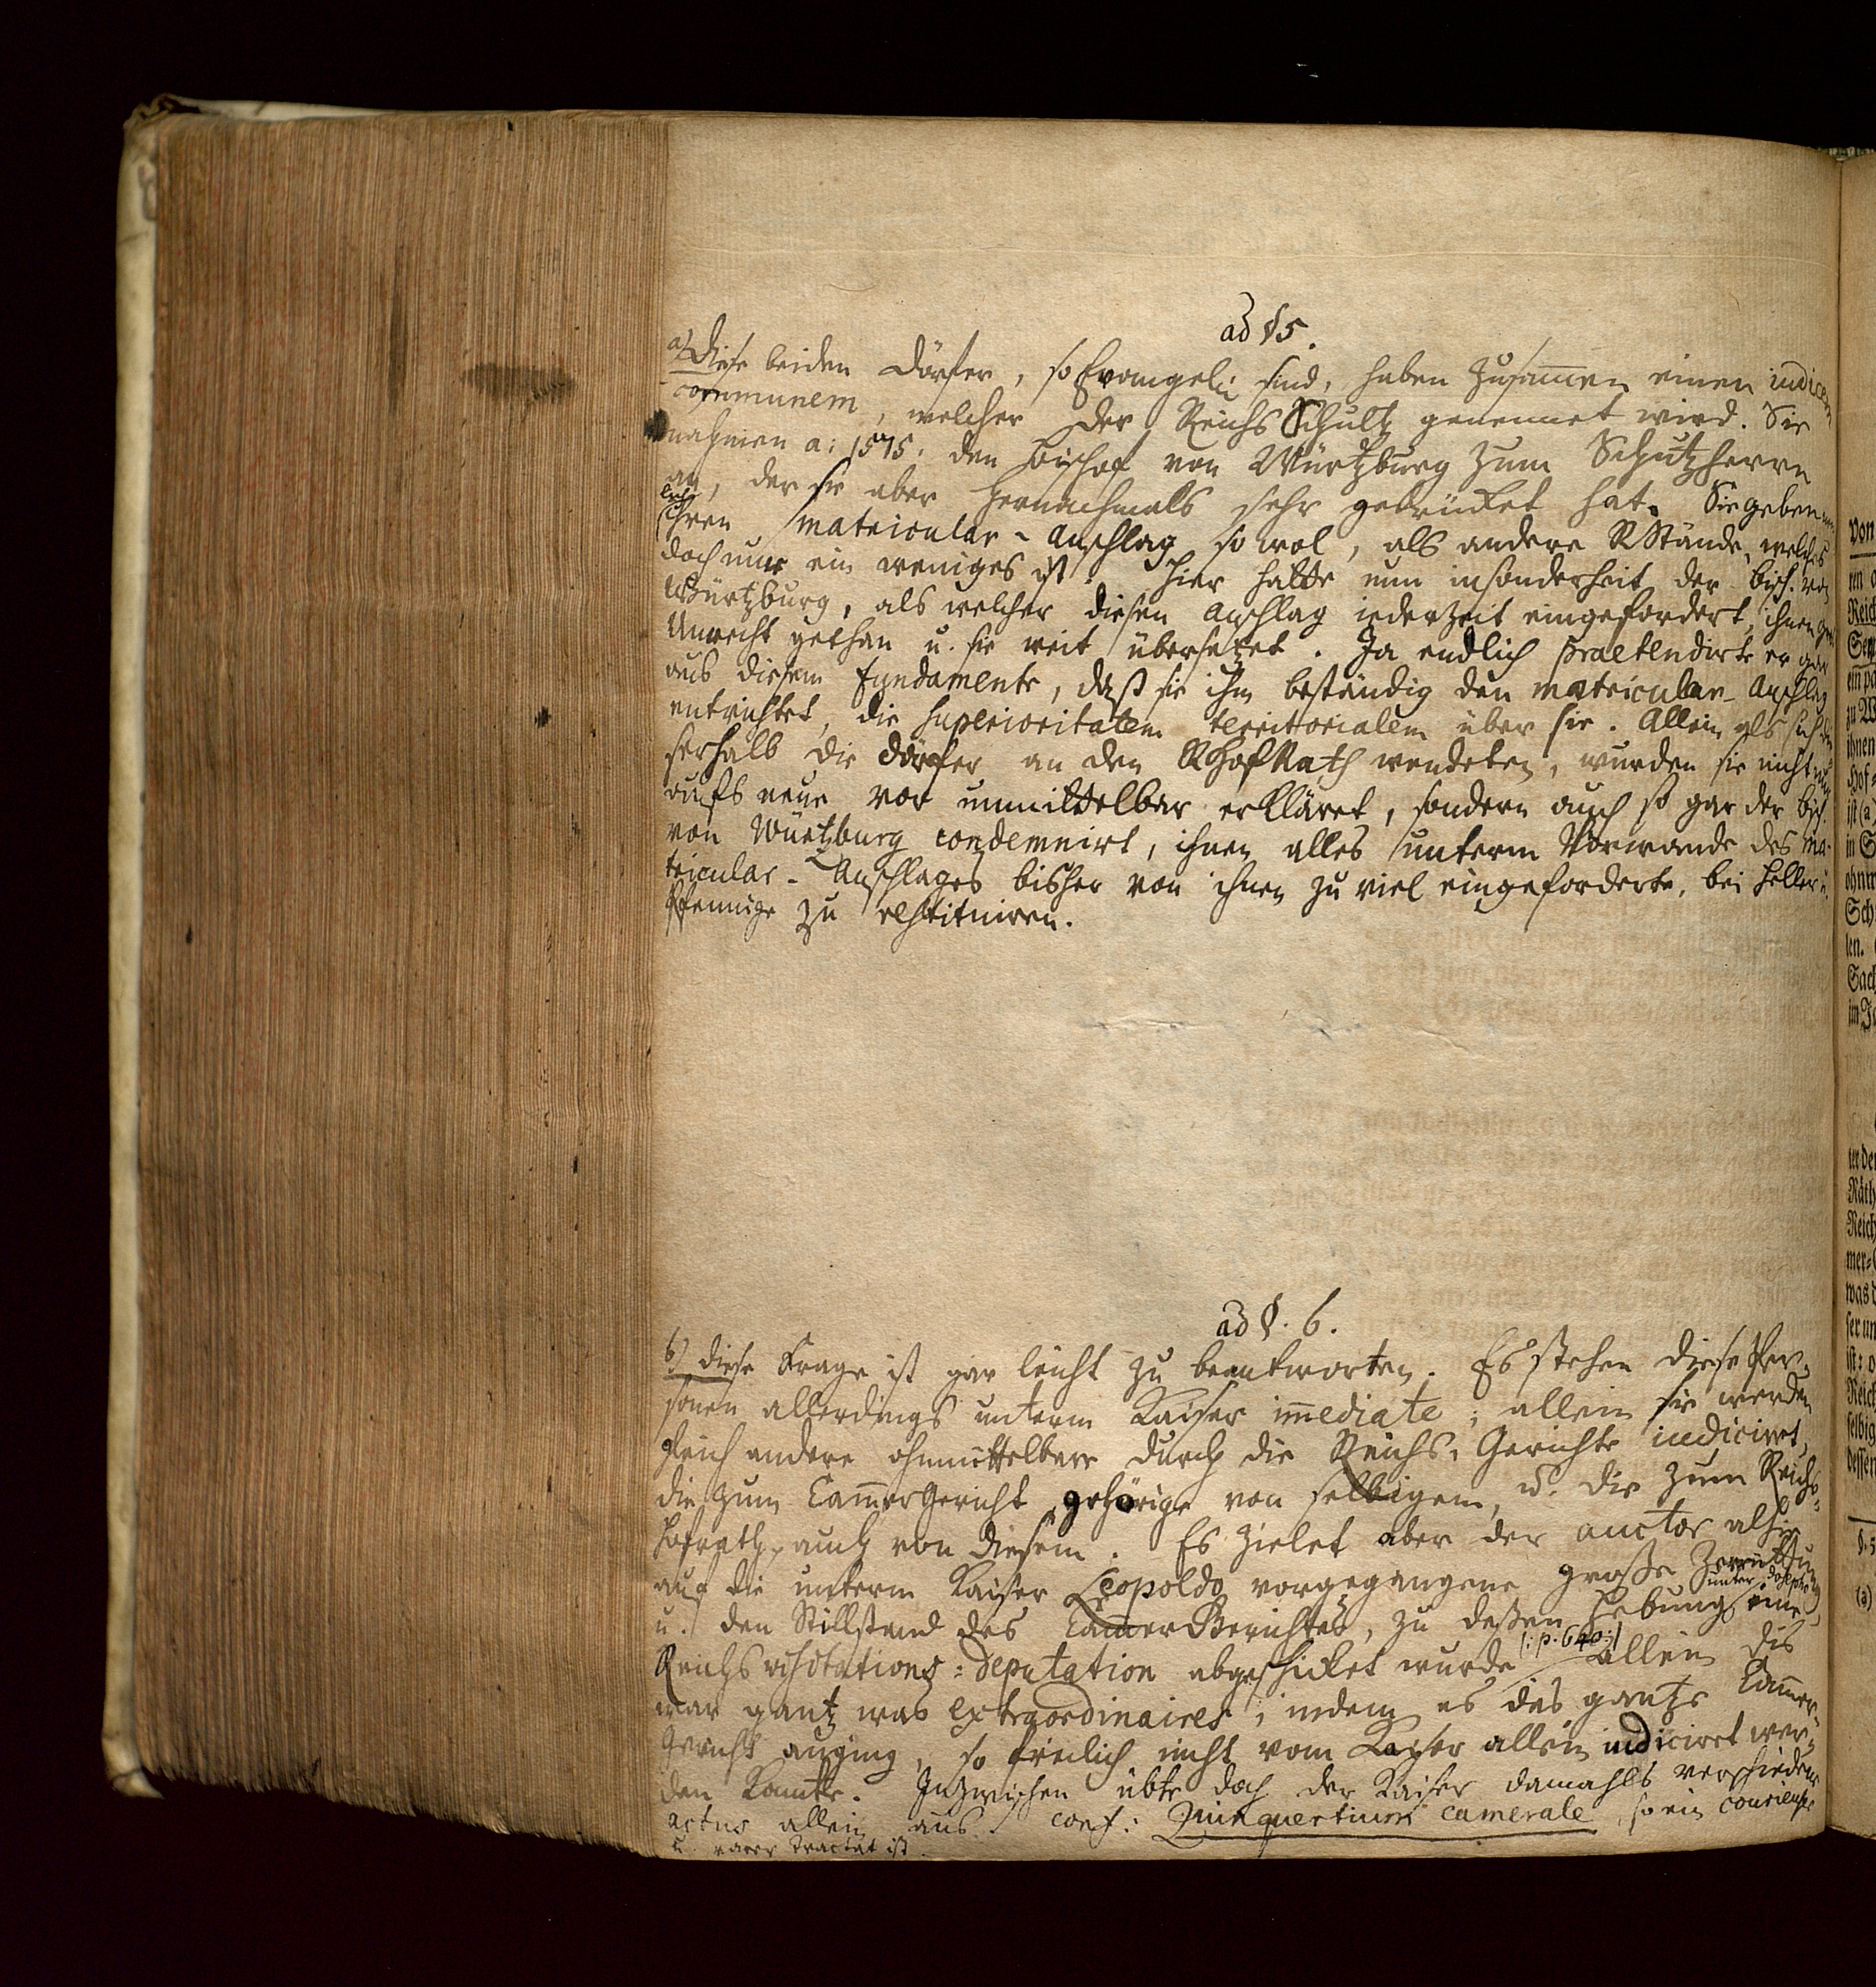 ad §5.
a) Diese beiden Dörfer, so Evangel: sind, haben zusam̅en einen iudicem
communem, welcher der Reichs Schultz genennet wird. Sie
nahmen a: 1575. den Bischof von Würtzburg zum Schutzherrn
an, der sie aber hernachmals sehr gedrücket hat. Sie geben
ihren matricular-Anschlag so wol, als andere RStände, welches
doch nur ein weniges ist. Hier hatte nun insonderheit der Bisch. von
Würtzburg, als welcher diesen Anschlag iederzeit eingefordert, ihnen
Unrecht gethan u. sie weit übersetzet. Ja endlich praetendirte er gar
aus diesem Fundamente, daß sie ihm beständig den matricular-Anschlag
entrichtet, die superioritatem territorialem über sie. Allein als sich
ferhalb die Dörfer an den RHofRath wendeten, wurden sie nicht nur
aufs neue vor unmittelbar erkläret, sondern auch so gar der Bisch.
von Würtzburg condemnirt, ihnen alles unterm Vorwande des ma-
tricular-Anschlages bisher von ihnen zu viel eingeforderte, bei Heller u.
Pfennige zu restituiren.
ad §. 6.
b) Diese Frage ist gar leicht zu beantworten. Es stehen diese Per-
sonen allerdings unterm Kaiser im̅ediate; allein sie werden
gleich andere ohnmittelbare durch die Reichs-Gerichte iudiciret,
die zum Cam̅erGericht gehörige von selbigem, u. die zum Reichs-
Hofrath, auch von diesem. Es zielet aber der auctor alhie
auf die unterm Kaiser Leopoldo vorgegangene große Zerrüttung
u. den Stillstand des Cam̅erGerichtes, zu deßen Hebung eine
Reichs visitations-deputation abgeschicket wurde |:p. 640:| Allein dis
war gantz was extraordinaires; indem es das gantze Cam̅er-
Gericht anging, so freilich nicht vom Kayser allein iudiciret wer-
den konte. Inzwischen übte doch der Kaiser damahls verschiedene
actus allein aus. conf: Quinquertium camerale, so ein courieuser
u. rarer Tractat ist.